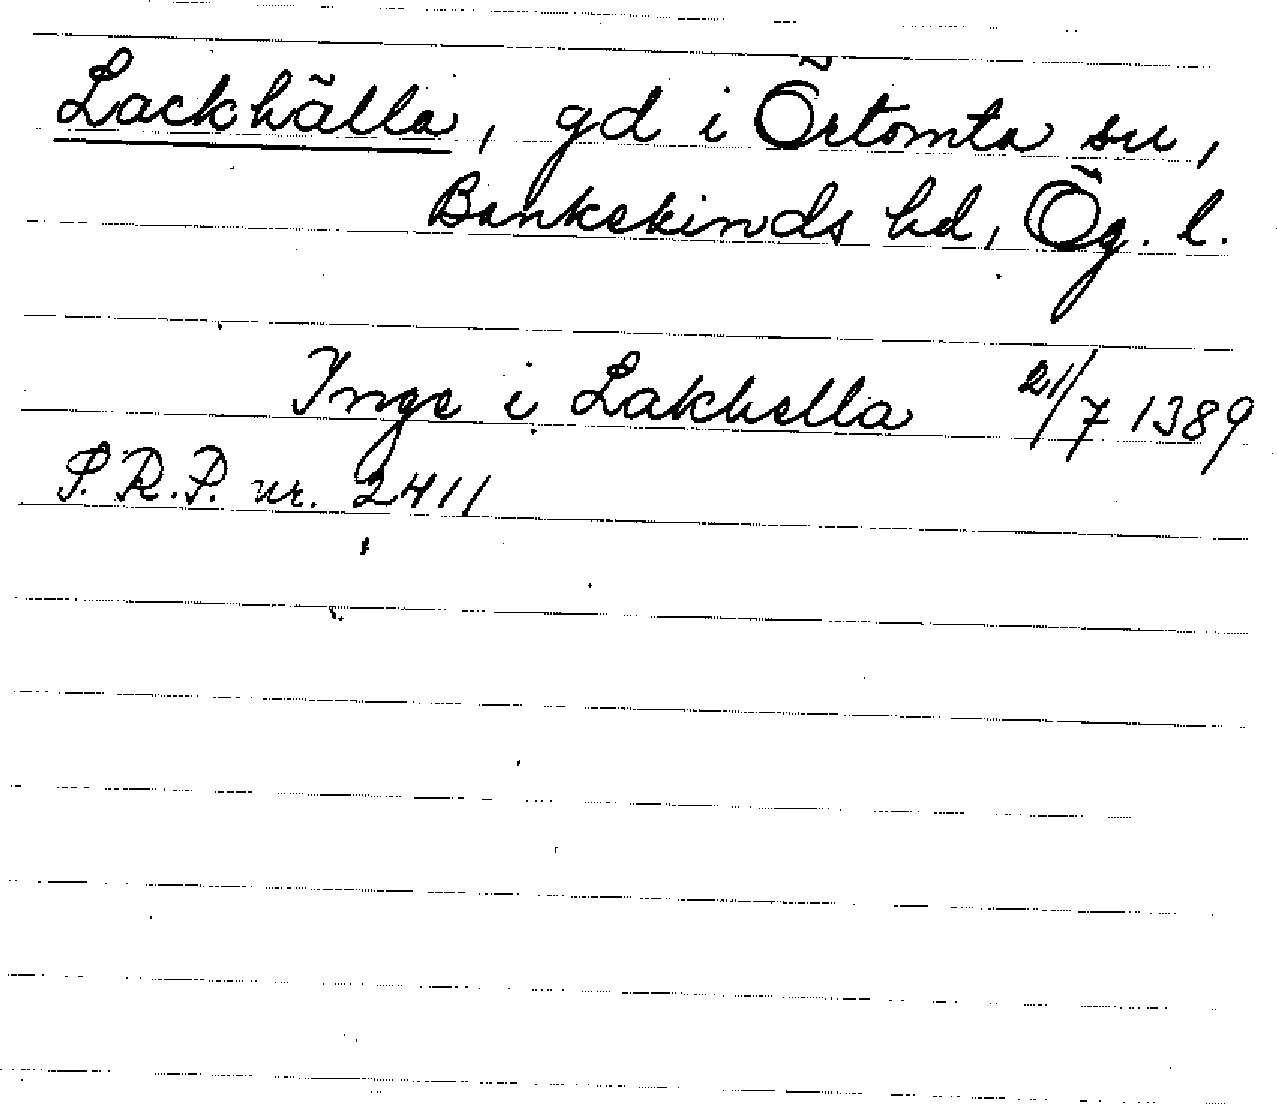 Lackhälla, gd i Örtomta sn,
Bankekinds hd, Ög. l.
Inge i Lakhella 21/7 1389
S.R.P. nr. 2411